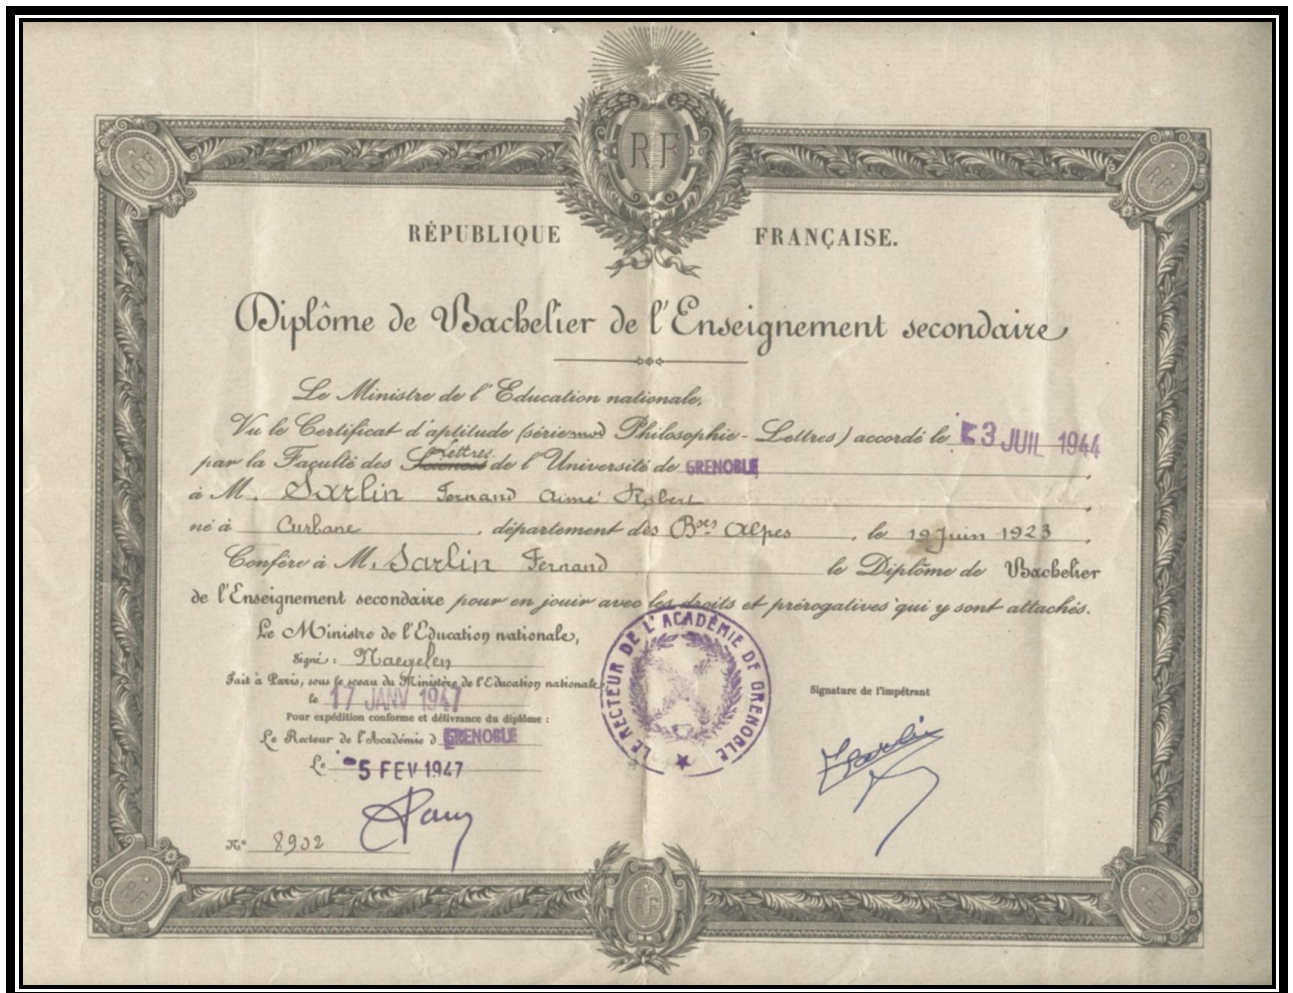 RF
RF
RF
RÉPUBLIQUE FRANÇAISE.
Diplôme de Bachelier de l'Enseignement secondaire
Le Ministre de l'Education nationale,
Vu le Certificat d'aptitude (série mod Philosophie - Lettres) accordé le 3 JUIL 1944
par la Faculté des Sciences Lettres de l'Université de GRENOBLE
à M. Sarlin Fernand Aimé Robert
né à Curbane, département des Bses Alpes, le 19 Juin 1923,
Confère à M. Sarlin Fernand le Diplôme de Bachelier
de l'Enseignement secondaire pour en jouir avec les droits et prérogatives qui y sont attachés.
Le Ministre de l'Education nationale,
Signé : Naegelen
Fait à Paris, sous le sceau du Ministère de l'Education nationale
le 17 JANV 1947
Pour expédition conforme et délivrance du diplôme :
Le Recteur de l'Académie d GRENOBLE
Le 5 FEV 1947
LE RECTEUR DE L'ACADÉMIE DE GRENOBLE
Signature de l'impétrant
FSarlin
No 8902
RF
RF
RF